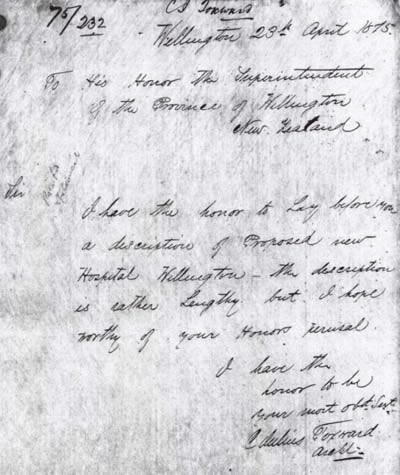 75/232
C J Toxward
Wellington 23th April 1875.
To His Honor the Superintendent
of the Province of Wellington
New Zealand
Sir
I have the honor to Lay before you
a discription of Proposed new
Hospital Wellington – the description
is rather Lengthy but I hope
worthy of your Honors perusal.
I have the
honor to be
your most obdt. Servt.
C Julius Toxward
Archt.